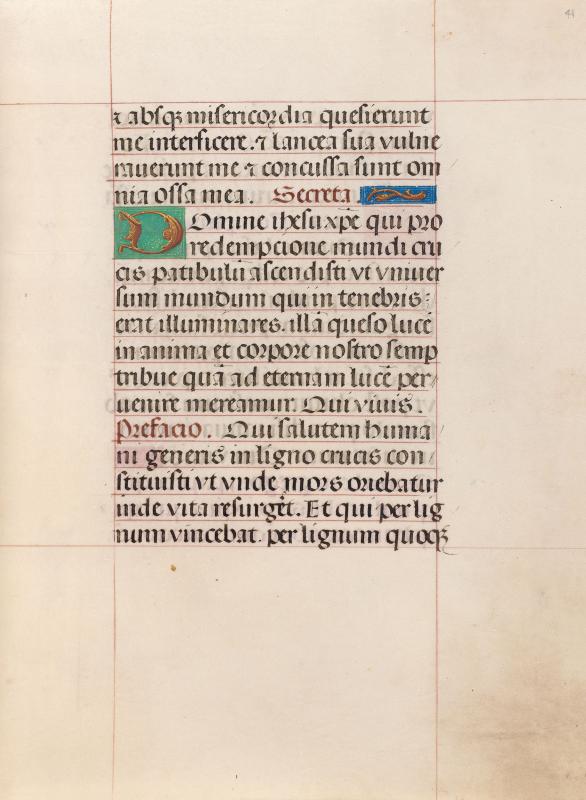 41
& absqȝ misericordia quesierunt
me interficere. ⁊ lancea sua vulne
rauerunt me ⁊ concussa sunt om
nia ossa mea. Secreta
Domine ihesu xp̄e qui pro
redempcione mundi cru
cis patibulū ascendisti vt vniuer
sum mundum qui in tenebris
erat illuminares. illā queso lucē
in anima et corpore nostro semp
tribue quā ad eternam lucē per
uenire mereamur. Qui viuis.
Prefacio. Qui salutem huma
ni generis in ligno crucis con
stituisti vt vnde mors oriebatur
inde vita resurgēt. Et qui per lig
num vincebat. per lignum quoqȝ